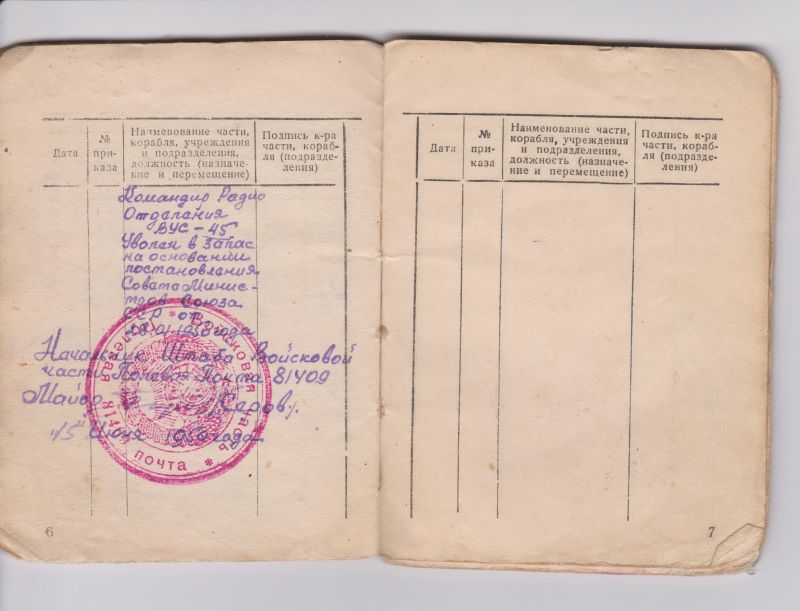 Дата
№ при-каза
Наименование части,
корабля, учреждения
и подразделения,
должность (назначе-
ние и перемещение)
Подпись к-ра
части, кораб-
ля (подразде-
ления)
Командир Радио
Отделения
ВУС - 45
Уволен в Запас
на основании
постановления
Совета Минис-
тров Союза
ССР от
1950 года
Начальник Штаба Войсковой
части Полевая Почта 81409
Майор (Серов).
"15" 1950 года
* Войсковая часть * полевая почта 81409
6
Дата
№
при-
каза
Наименование части,
корабля, учреждения
и подразделения,
должность (назначе-
ние и перемещение)
Подпись к-ра
части, кораб-
ля (подразде-
ления)
7